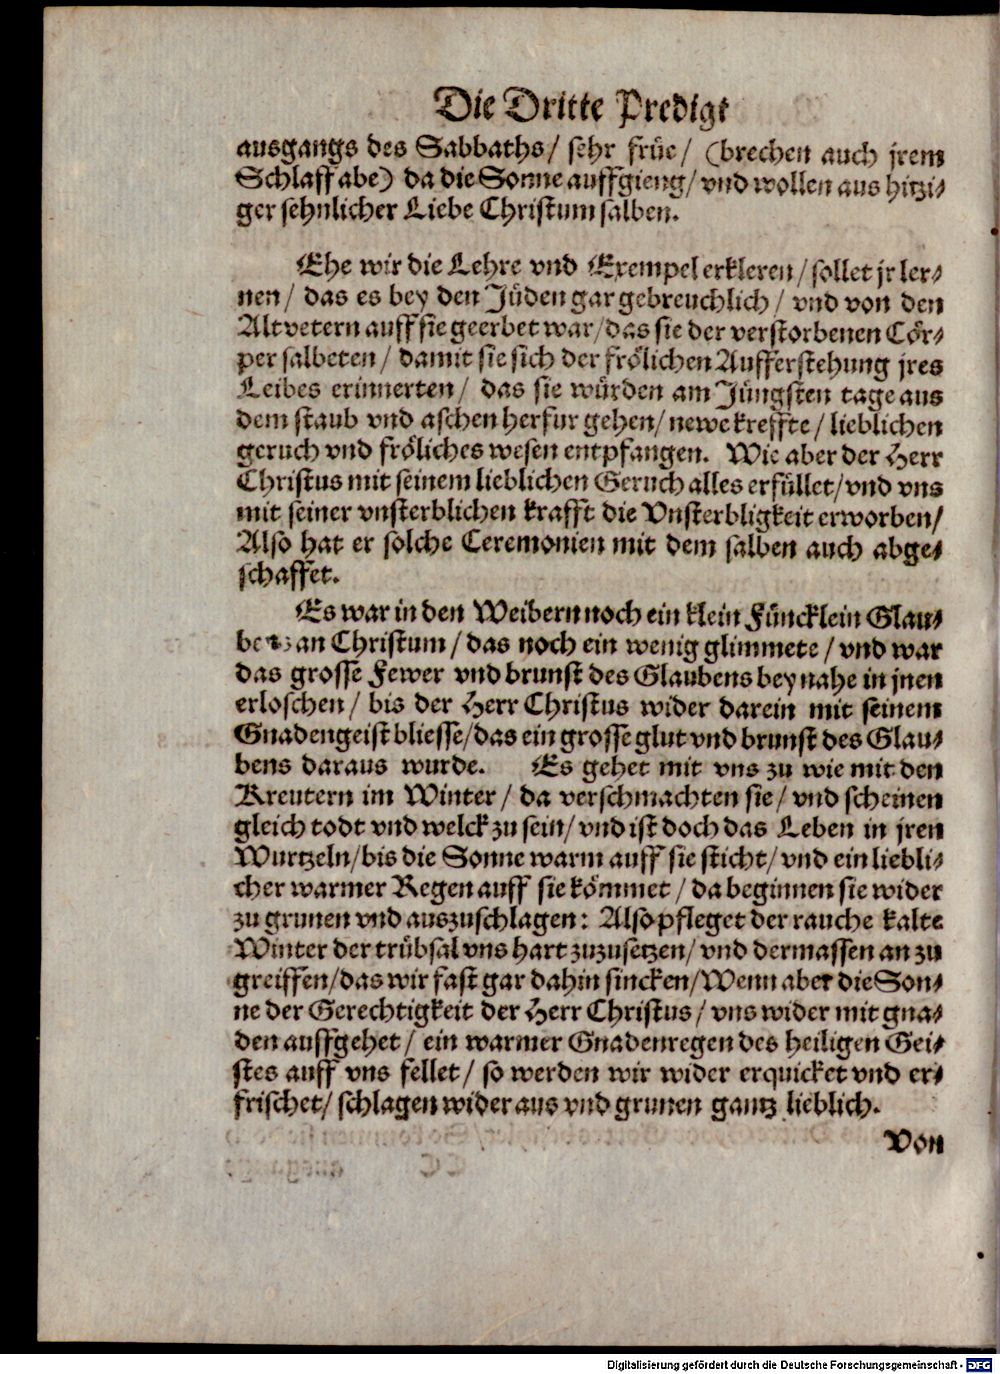 Die Dritte Predigt
ausgangs des Sabbaths/ sehr früe/ (brechen auch jrem
Schlaff abe) da die Sonne auffgieng/ vnd wollen aus hitzi-
ger sehnlicher Liebe Christum salben.
Ehe wir die Lehre vnd Exempel erkleren/ sollet jr ler-
nen/ das es bey den Jüden gar gebreuchlich/ vnd von den
Altvetern auff sie geerbet war/ das sie der verstorbenen Cör-
per salbeten/ damit sie sich der frölichen Aufferstehung jres
Leibes erinnerten/ das sie würden am Jüngsten tage aus
dem staub vnd aschen herfur gehen/ newe kreffte/ lieblichen
geruch vnd fröliches wesen entpfangen. Wie aber der Herr
Christus mit seinem lieblichen Geruch alles erfüllet/ vnd vns
mit seiner vnsterblichen krafft die Vnsterbligkeit erworben/
Also hat er solche Ceremonien mit dem salben auch abge-
schaffet.
Es war in den Weibern noch ein klein Füncklein Glau-
ben an Christum/ das noch ein wenig glimmete/ vnd war
das grosse Fewer vnd brunst des Glaubens bey nahe in jnen
erloschen/ bis der Herr Christus wider darein mit seinem
Gnadengeist bliesse/ das ein grosse glut vnd brunst des Glau-
bens daraus wurde. Es gehet mit vns zu wie mit den
Kreutern im Winter/ da verschmachten sie/ vnd scheinen
gleich todt vnd welck zu sein/ vnd ist doch das Leben in jren
Wurtzeln/ bis die Sonne warm auff sie sticht/ vnd ein liebli-
cher warmer Regen auff sie kömmet/ da beginnen sie wider
zu grunen vnd auszuschlagen: Also pfleget der rauche kalte
Winter der trübsal vns hart zuzusetzen/ vnd dermassen an zu
greiffen/ das wir fast gar dahin sincken/ Wenn aber die Son-
ne der Gerechtigkeit der Herr Christus/ vns wider mit gna-
den auffgehet/ ein warmer Gnadenregen des heiligen Gei-
stes auff vns fellet/ so werden wir wider erquicket vnd er-
frischet/ schlagen wider aus vnd grunen gantz lieblich.
Von
Digitalisierung gefördert durch die Deutsche Forschungsgemeinschaft - DFG